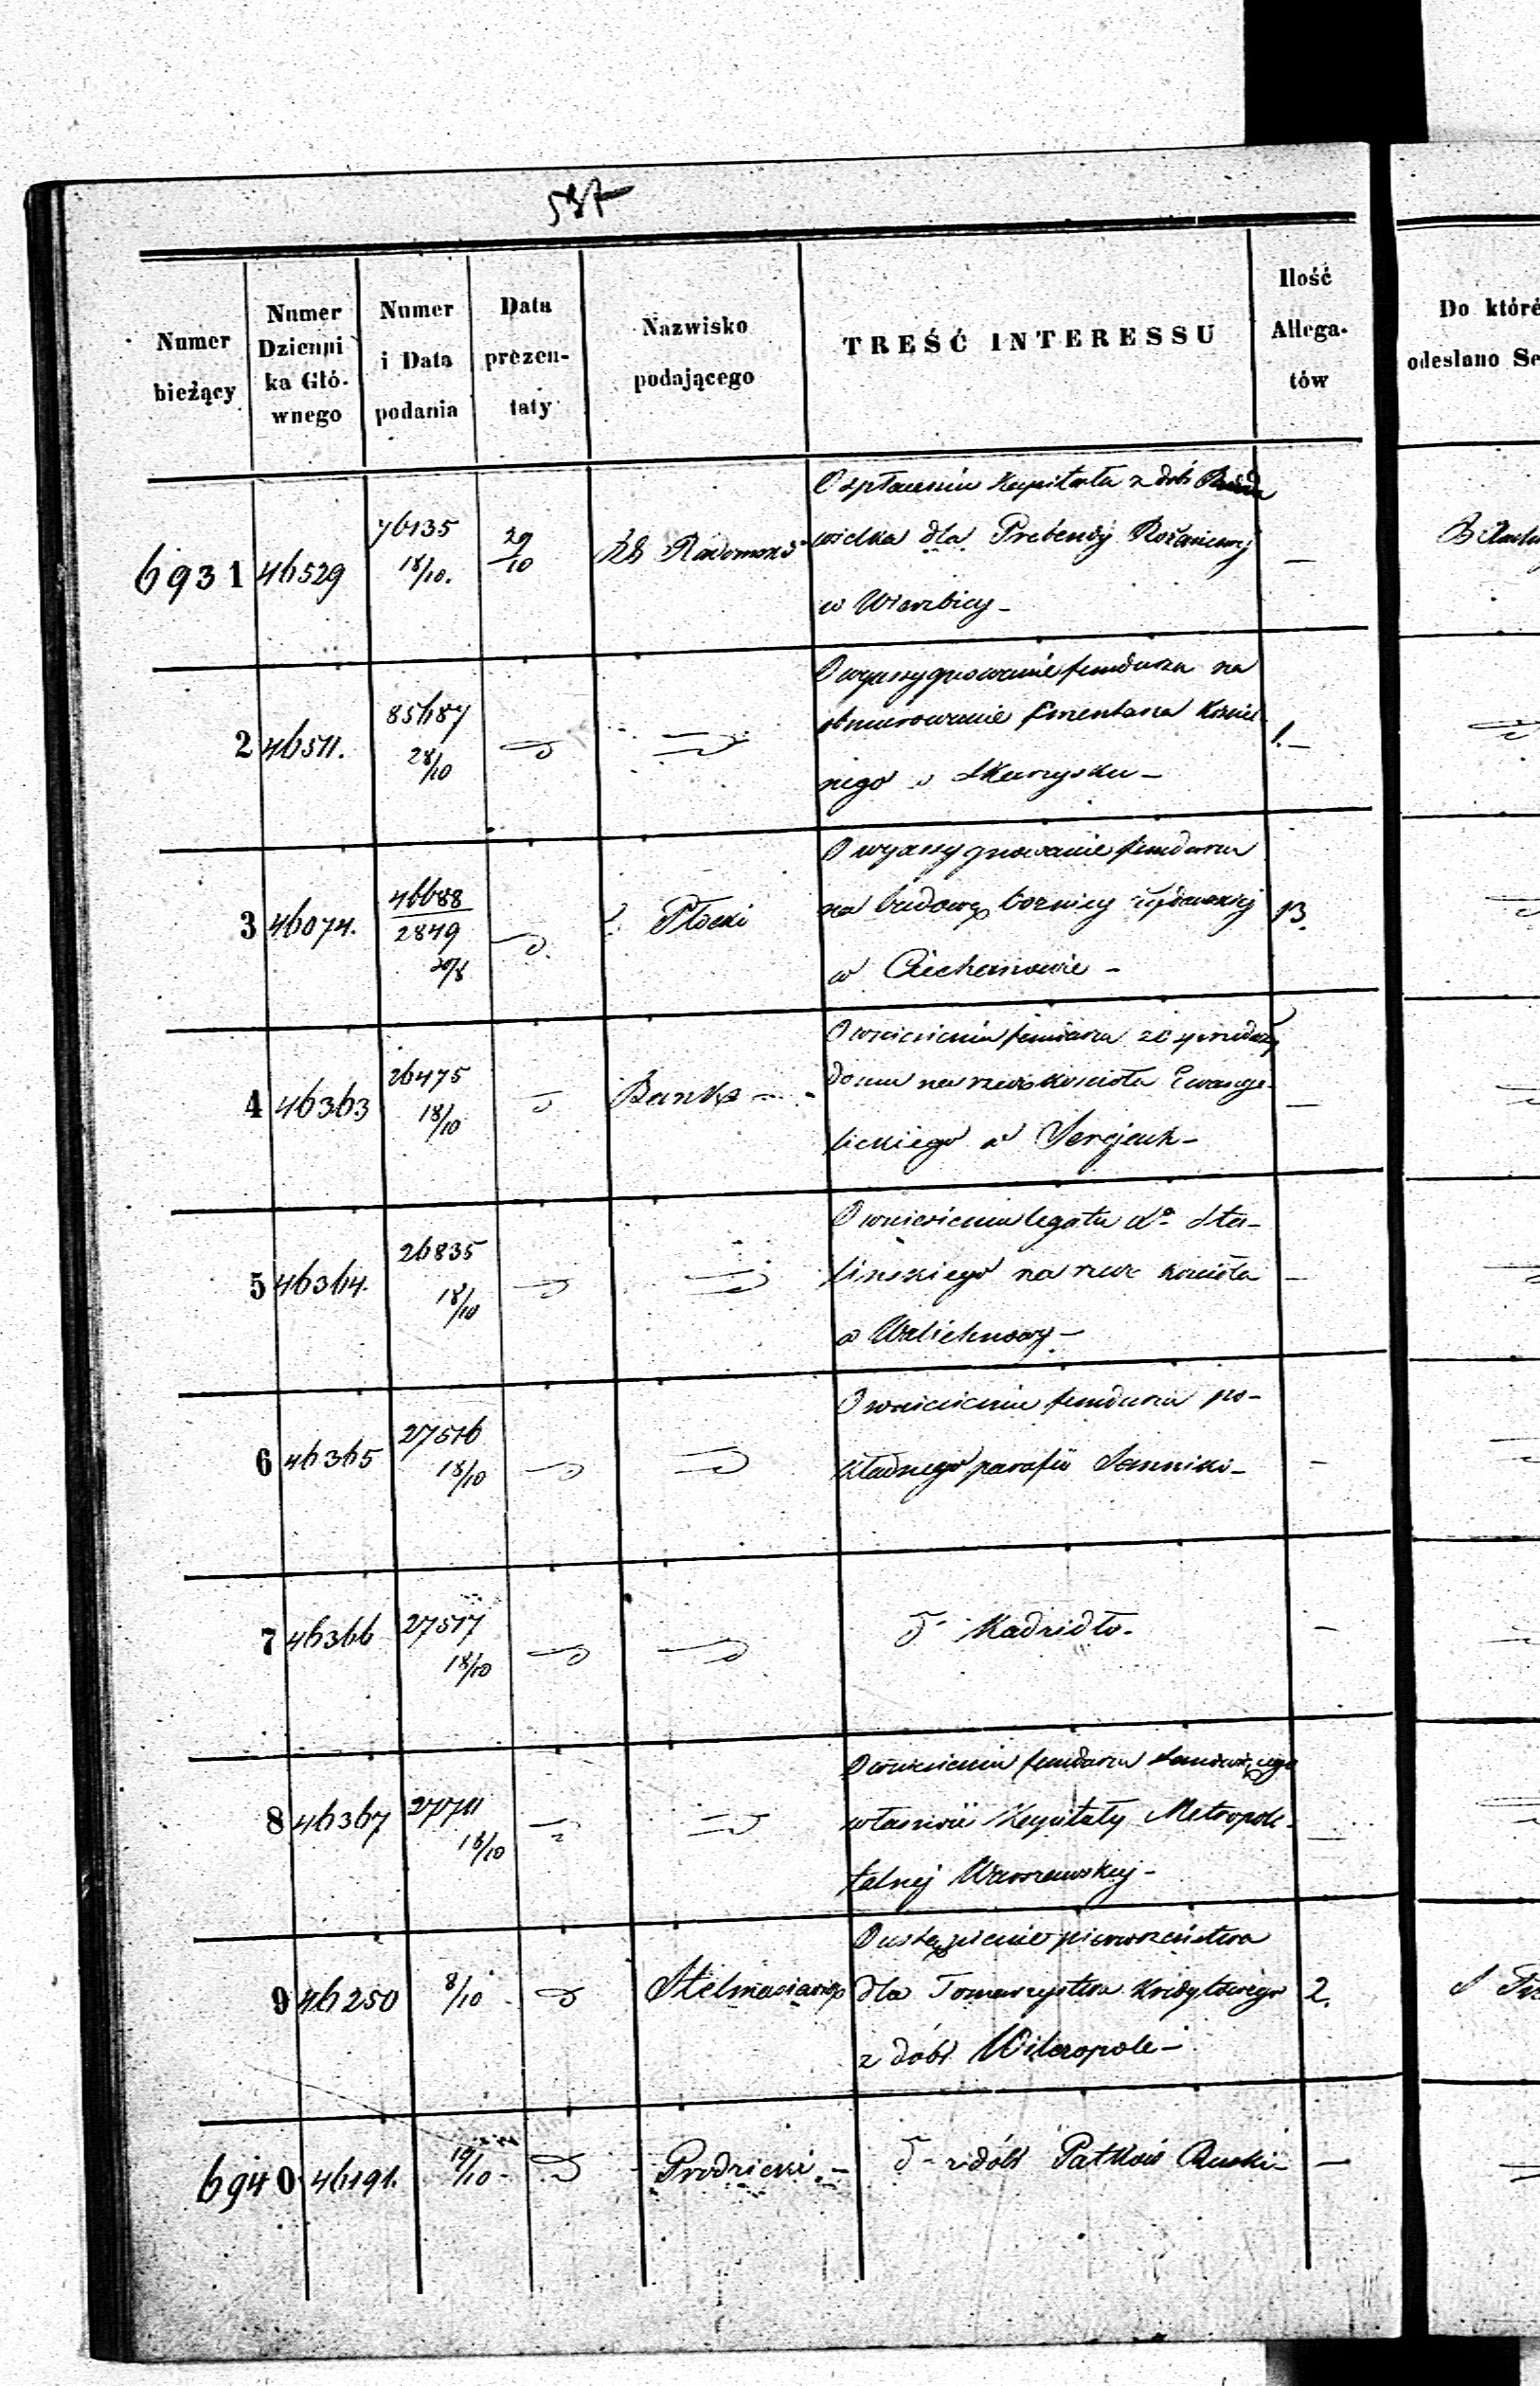 587
Numer bieżący
Numer Dzienni ka Głó- wnego
Numer i Data podania
Data prezen- taty
Nazwisko podającego
TREŚĆ INTERESSU
Ilość Allega- tów
Do któré
odesłano Se
6931 46529 76135 18/10. 29/10 Radomski
O spłaceniu Kapitału z dób
wielka dla Prebendy Rożańcowej —
w Wierzbicy —
2 46511. 85687 28/10
O wyassygnowanie funduszu na
obmurowanie Cmentarza Koście- 1. —
nego w Skaryszku —
3 46074. 46688 2849 20/8 Płocki
O wyassygnowanie funduszu
na budowę bożnicy żydowskiej 13.
w Ciechanowie —
4 46363 26475 18/10 Banku
O wniesieniu funduszu ze sprzedaży
domu na rzecz kościoła Ewange- —
lickiego w Serejach —
5 46364. 26835 18/10
O wniesieniu legatu
na rzecz kościoła —
w Walichnowy —
6 46365 27516 18/10
O wniesienie funduszu po-
kładnego parafii Sanniki — —
7 46366 27517 18/10
Kadzidło. —
8 46367 27711 18/10
O wniesieniu funduszu
własność Kapituły Metropoli- —
talnej Warszawskiej —
9 46250 8/10 Stelmasiak
O ustąpienie pierwszeństwa
dla Towarzystwa Kredytowego 2.
z dóbr Wilczopole —
6940 46191. 19/10 — Prodzicki. —
z dóbr Patków Ruski — —